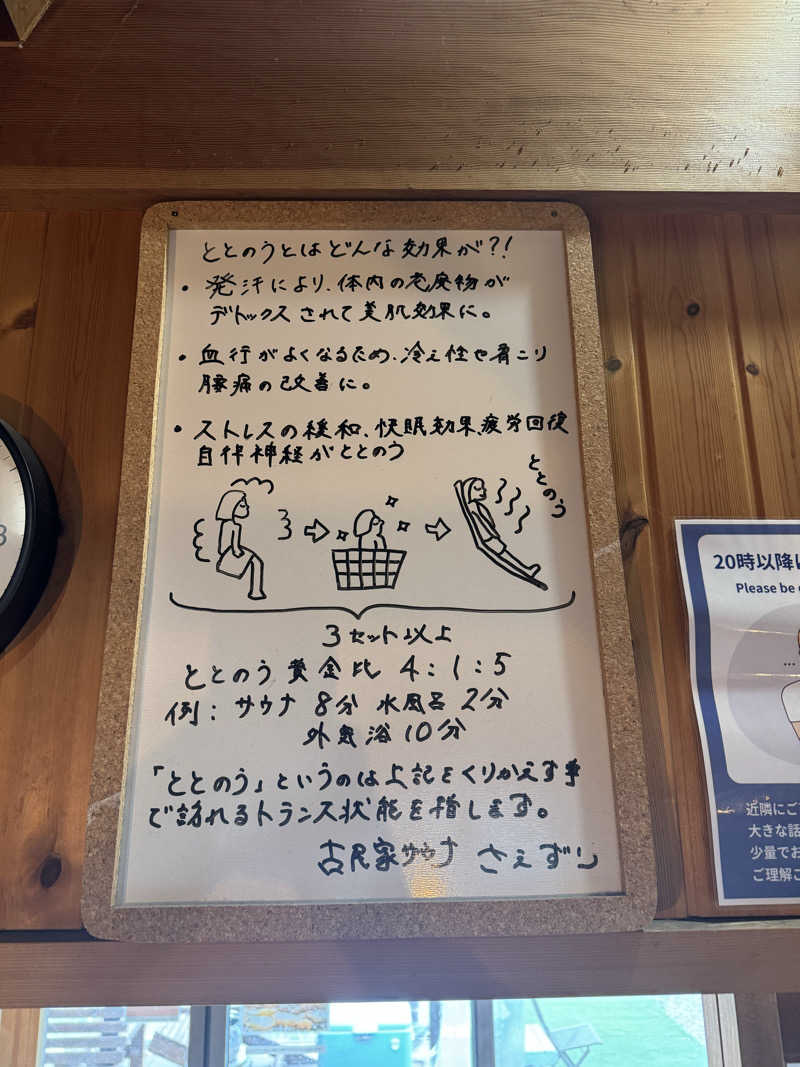 ととのうとはどんな効果が?!
・発汗により、体内の老廃物が
デトックスされて美肌効果に。
・血行がよくなるため、冷え性や肩こり
腰痛の改善に。
・ストレスの緩和、快眠効果、疲労回復
自律神経がととのう
ととのう
3セット以上
ととのう黄金比 4:1:5
例:サウナ 8分 水風呂 2分
外気浴 10分
「ととのう」というのは上記をくりかえす事
で訪れるトランス状態を指します。
古民家サウナ さえずり
20時以降
Please be
近隣にご
大きな話
少量でお
ご理解